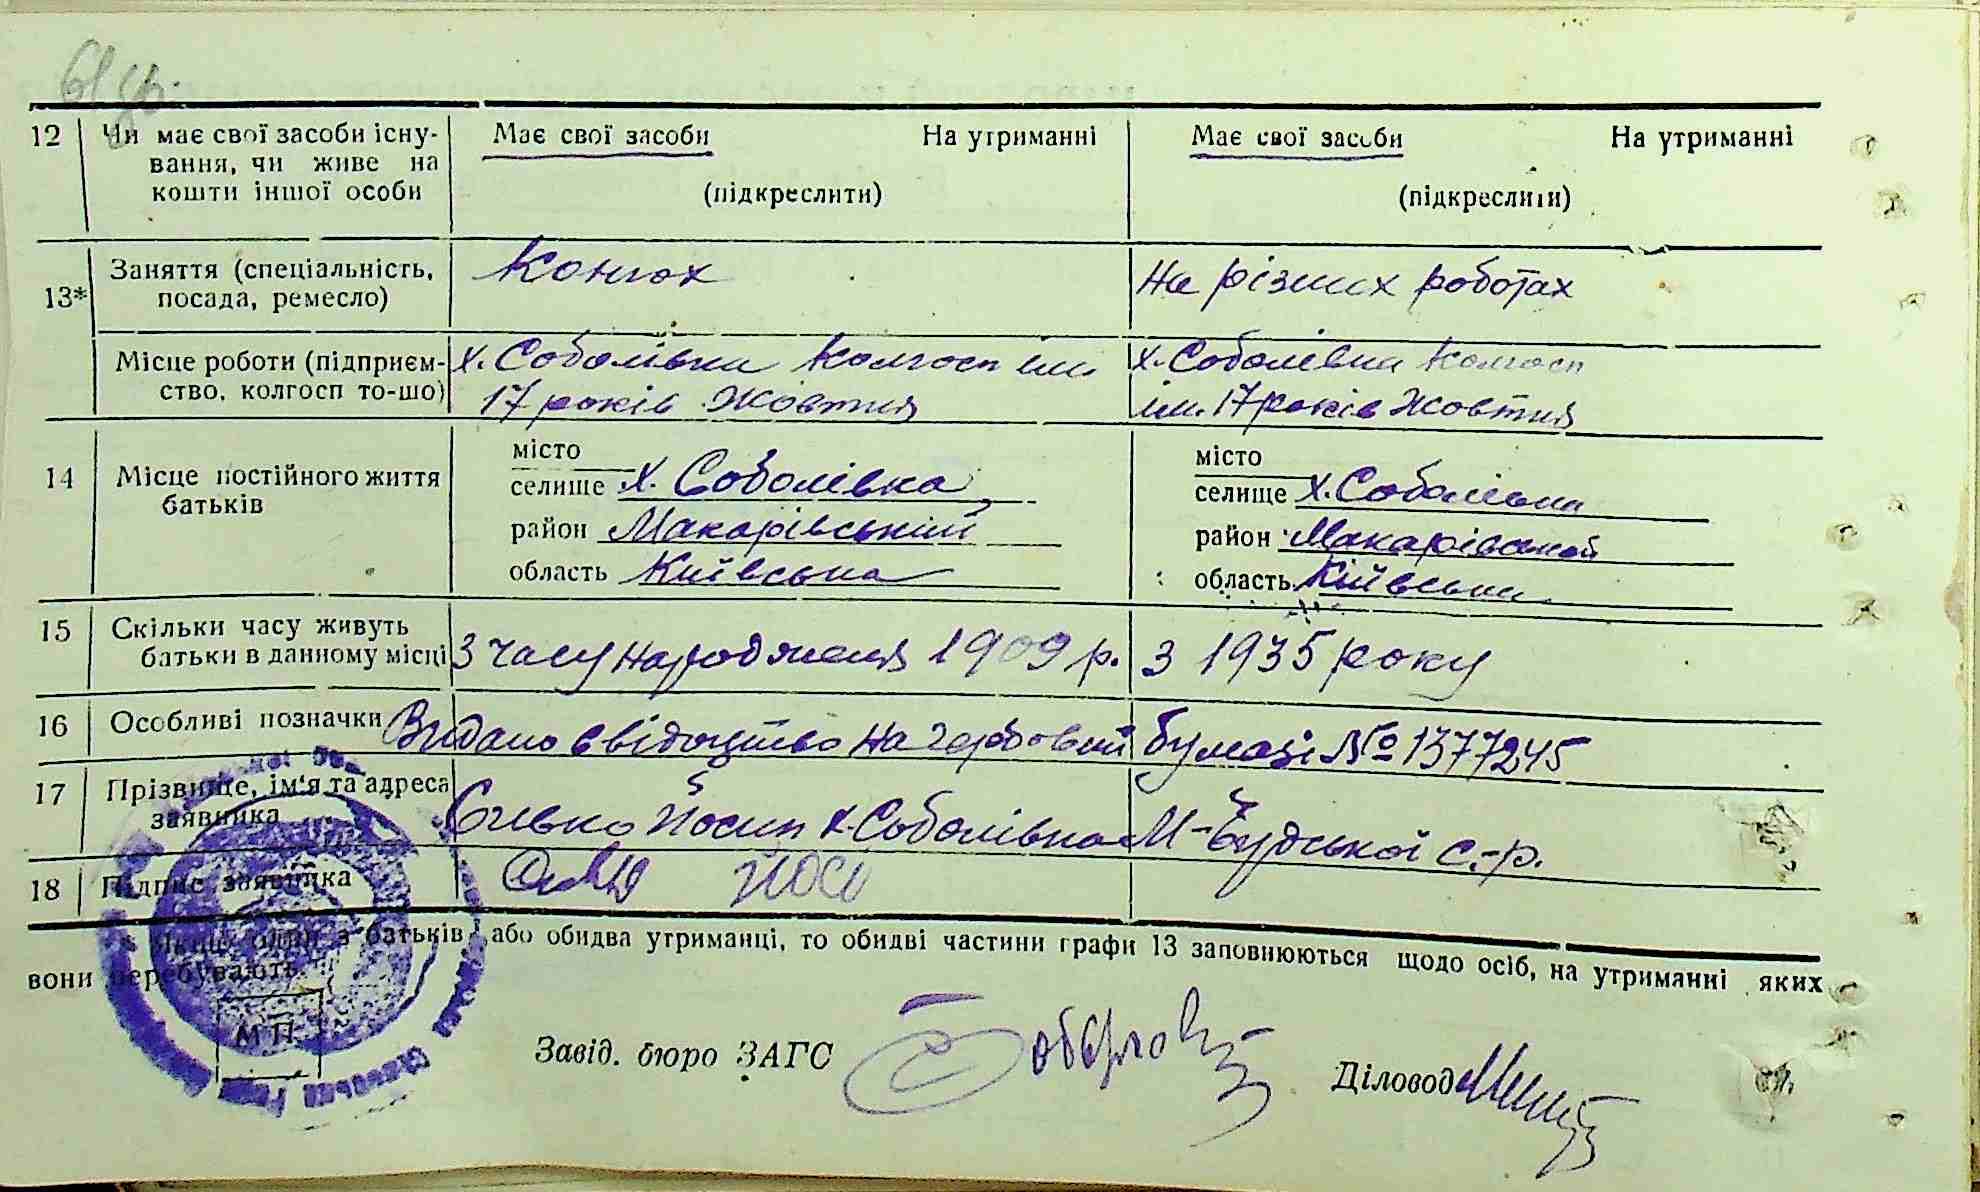 61 зв.
12 Чи має свої засоби існу- Має свої засоби На утриманні Має свої засоби На утриманні
вання, чи живе на
кошти іншої особи (підкреслити) (підкреслити)
13* Заняття (спеціальність, Конюх На різних роботах
посада, ремесло)
Місце роботи (підприєм- х. Соболівка Колгосп ім. х. Соболівка Колгосп
ство, колгосп то-шо) 17 років Жовтня ім. 17 років Жовтня
14 Місце постійного життя місто місто
батьків селище х. Соболівка селище х. Соболівка
район Макарівський район Макарівський
область Київська область Київська
15 Скільки часу живуть
батьки в данному місці З часу народження 1909 р. З 1935 року
16 Особливі позначки Видано свідоцтво на гербовий бумазі № 1377245
17 Прізвище, ім'я та адреса
заявника Йосип х. Соболівка М-Будської с.-р.
18 Підпис заявника Йоси
* Якщо один з батьків або обидва утриманці, то обидві частини графи 13 заповнюються щодо осіб, на утриманні яких
вони перебувають.
М П.
Завід. бюро ЗАГС
Діловод